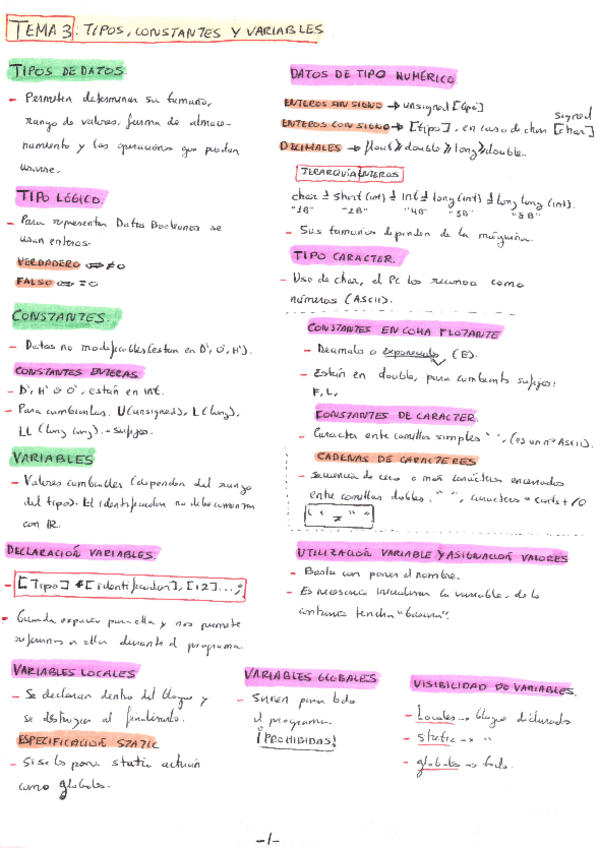 TEMA 3: TIPOS, CONSTANTES Y VARIABLES
TIPOS DE DATOS.
- Permiten determinar su tamaño,
rango de valores, forma de almace-
namiento y las operaciones que puedan
usarse.
TIPO LÓGICO.
- Para representar Datos Booleanos se
usan enteros.
VERDADERO ⇔ ≠0
FALSO ⇔ =0
DATOS DE TIPO NUMÉRICO
ENTEROS SIN SIGNO → unsigned [tipo]
ENTEROS CON SIGNO → [tipo], en caso de char signed [char]
DECIMALES → float » double » long double.
JERARQUÍA ENTEROS
char ≤ short (int) ≤ int ≤ long (int) ≤ long long (int).
"1B" "2B" "4B" "8B" "8B"
- Sus tamaños dependen de la máquina.
TIPO CARACTER.
- Uso de char, el Pc los reconoce como
números (ASCII).
CONSTANTES.
- Datos no modificables (están en D', O', H').
CONSTANTES ENTERAS
- D', H' o O', están en int.
- Para cambiarlas. U (unsigned), L (long),
LL (long long). - sufijos.
CONSTANTES EN COMA FLOTANTE
- Decimales o exponenciales (E).
- Están en double, para cambiarlas sufijos:
F, L,
CONSTANTES DE CARACTER.
- Caracter entre comillas simples ' ', (es un nº ASCII).
CADENAS DE CARACTERES
- Secuencia de cero o más carácteres encerrados
entre comillas dobles. " ",
' ' ≠ " "
VARIABLES
- Valores cambiables (dependen del rango
del tipo). El identificador no debe comenzar
con
DECLARACIÓN VARIABLES.
- [Tipo] [identificador], [i2]...;
- Guarda espacio para ella y nos permite
referirnos a ella durante el programa.
UTILIZACIÓN VARIABLE Y ASIGNACIÓN VALORES
- Basta con poner el nombre.
- Es necesario inicializar la variable, de lo
contrario tendrá "basura".
VARIABLES LOCALES
- Se declaran dentro del bloque y
se destruyen al finalizarlo.
ESPECIFICACIÓN STATIC
- Si se les pone static actúan
como globales.
VARIABLES GLOBALES
- Sirven para todo
el programa.
¡PROHIBIDAS!
VISIBILIDAD DE VARIABLES.
- Locales → bloque declarado
- Static → "
- globales → todo.
-1-